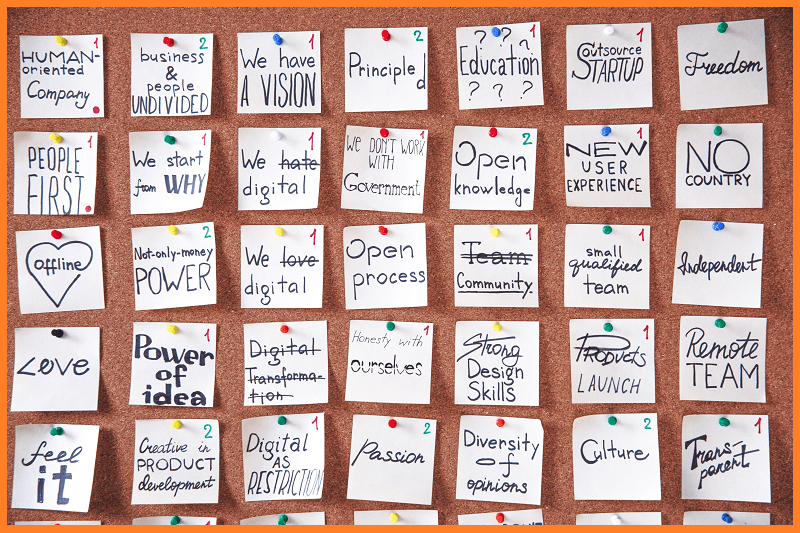 HUMAN- 1
oriented
Company
business 2
&
people
UNDIVIDED
We have 1
A VISION
Principled 2
? ? ? 1
Education
? ? ?
Outsource 1
STARTUP
Freedom
PEOPLE 1
FIRST
We start 1
from WHY
We hate 1
digital
We DON'T WORK 1
WITH
Government
Open 2
knowledge
NEW 1
USER
EXPERIENCE
NO
COUNTRY
offline
Not-only-money 2
POWER
We love 1
digital
Open
process
Team
Community.
small 1
qualified
team
Independent
Love
Power 1
of
idea
Digital
Transforma-
tion
Honesty with 1
ourselves
Strong
Design
Skills
Products 1
LAUNCH
Remote
TEAM
feel
it
Creative in 2
PRODUCT
development
Digital 1
AS
RESTRICTION
Passion 2
Diversity
of
opinions
Culture 2
Trans- 1
parent